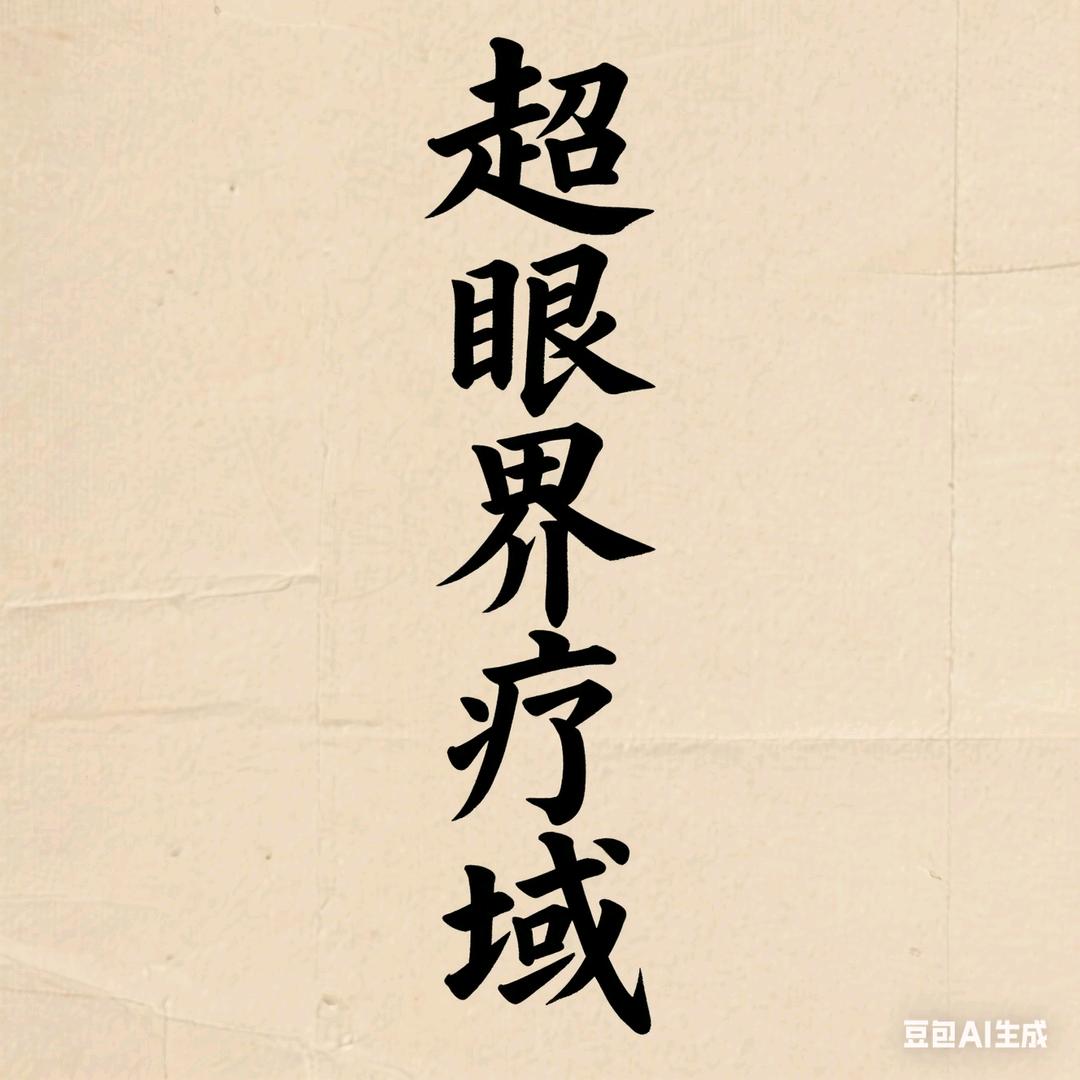 超眼界疗域
豆包AI生成